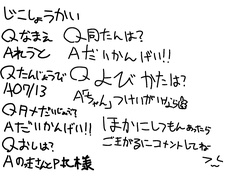 じこしょうかい
Qなまえ
Aれうと
Qたんじょうび
A07/13
Qタメだいじょぶ?
Aだいかんげい!!
Qおしは?
AのきさとP
Q同たんは?
Aだいかんげい!!
Qよびかたは?
A「ちゃん」つけいがいなら
ほかにしつもんあったら
ご王がるにコメントしてね